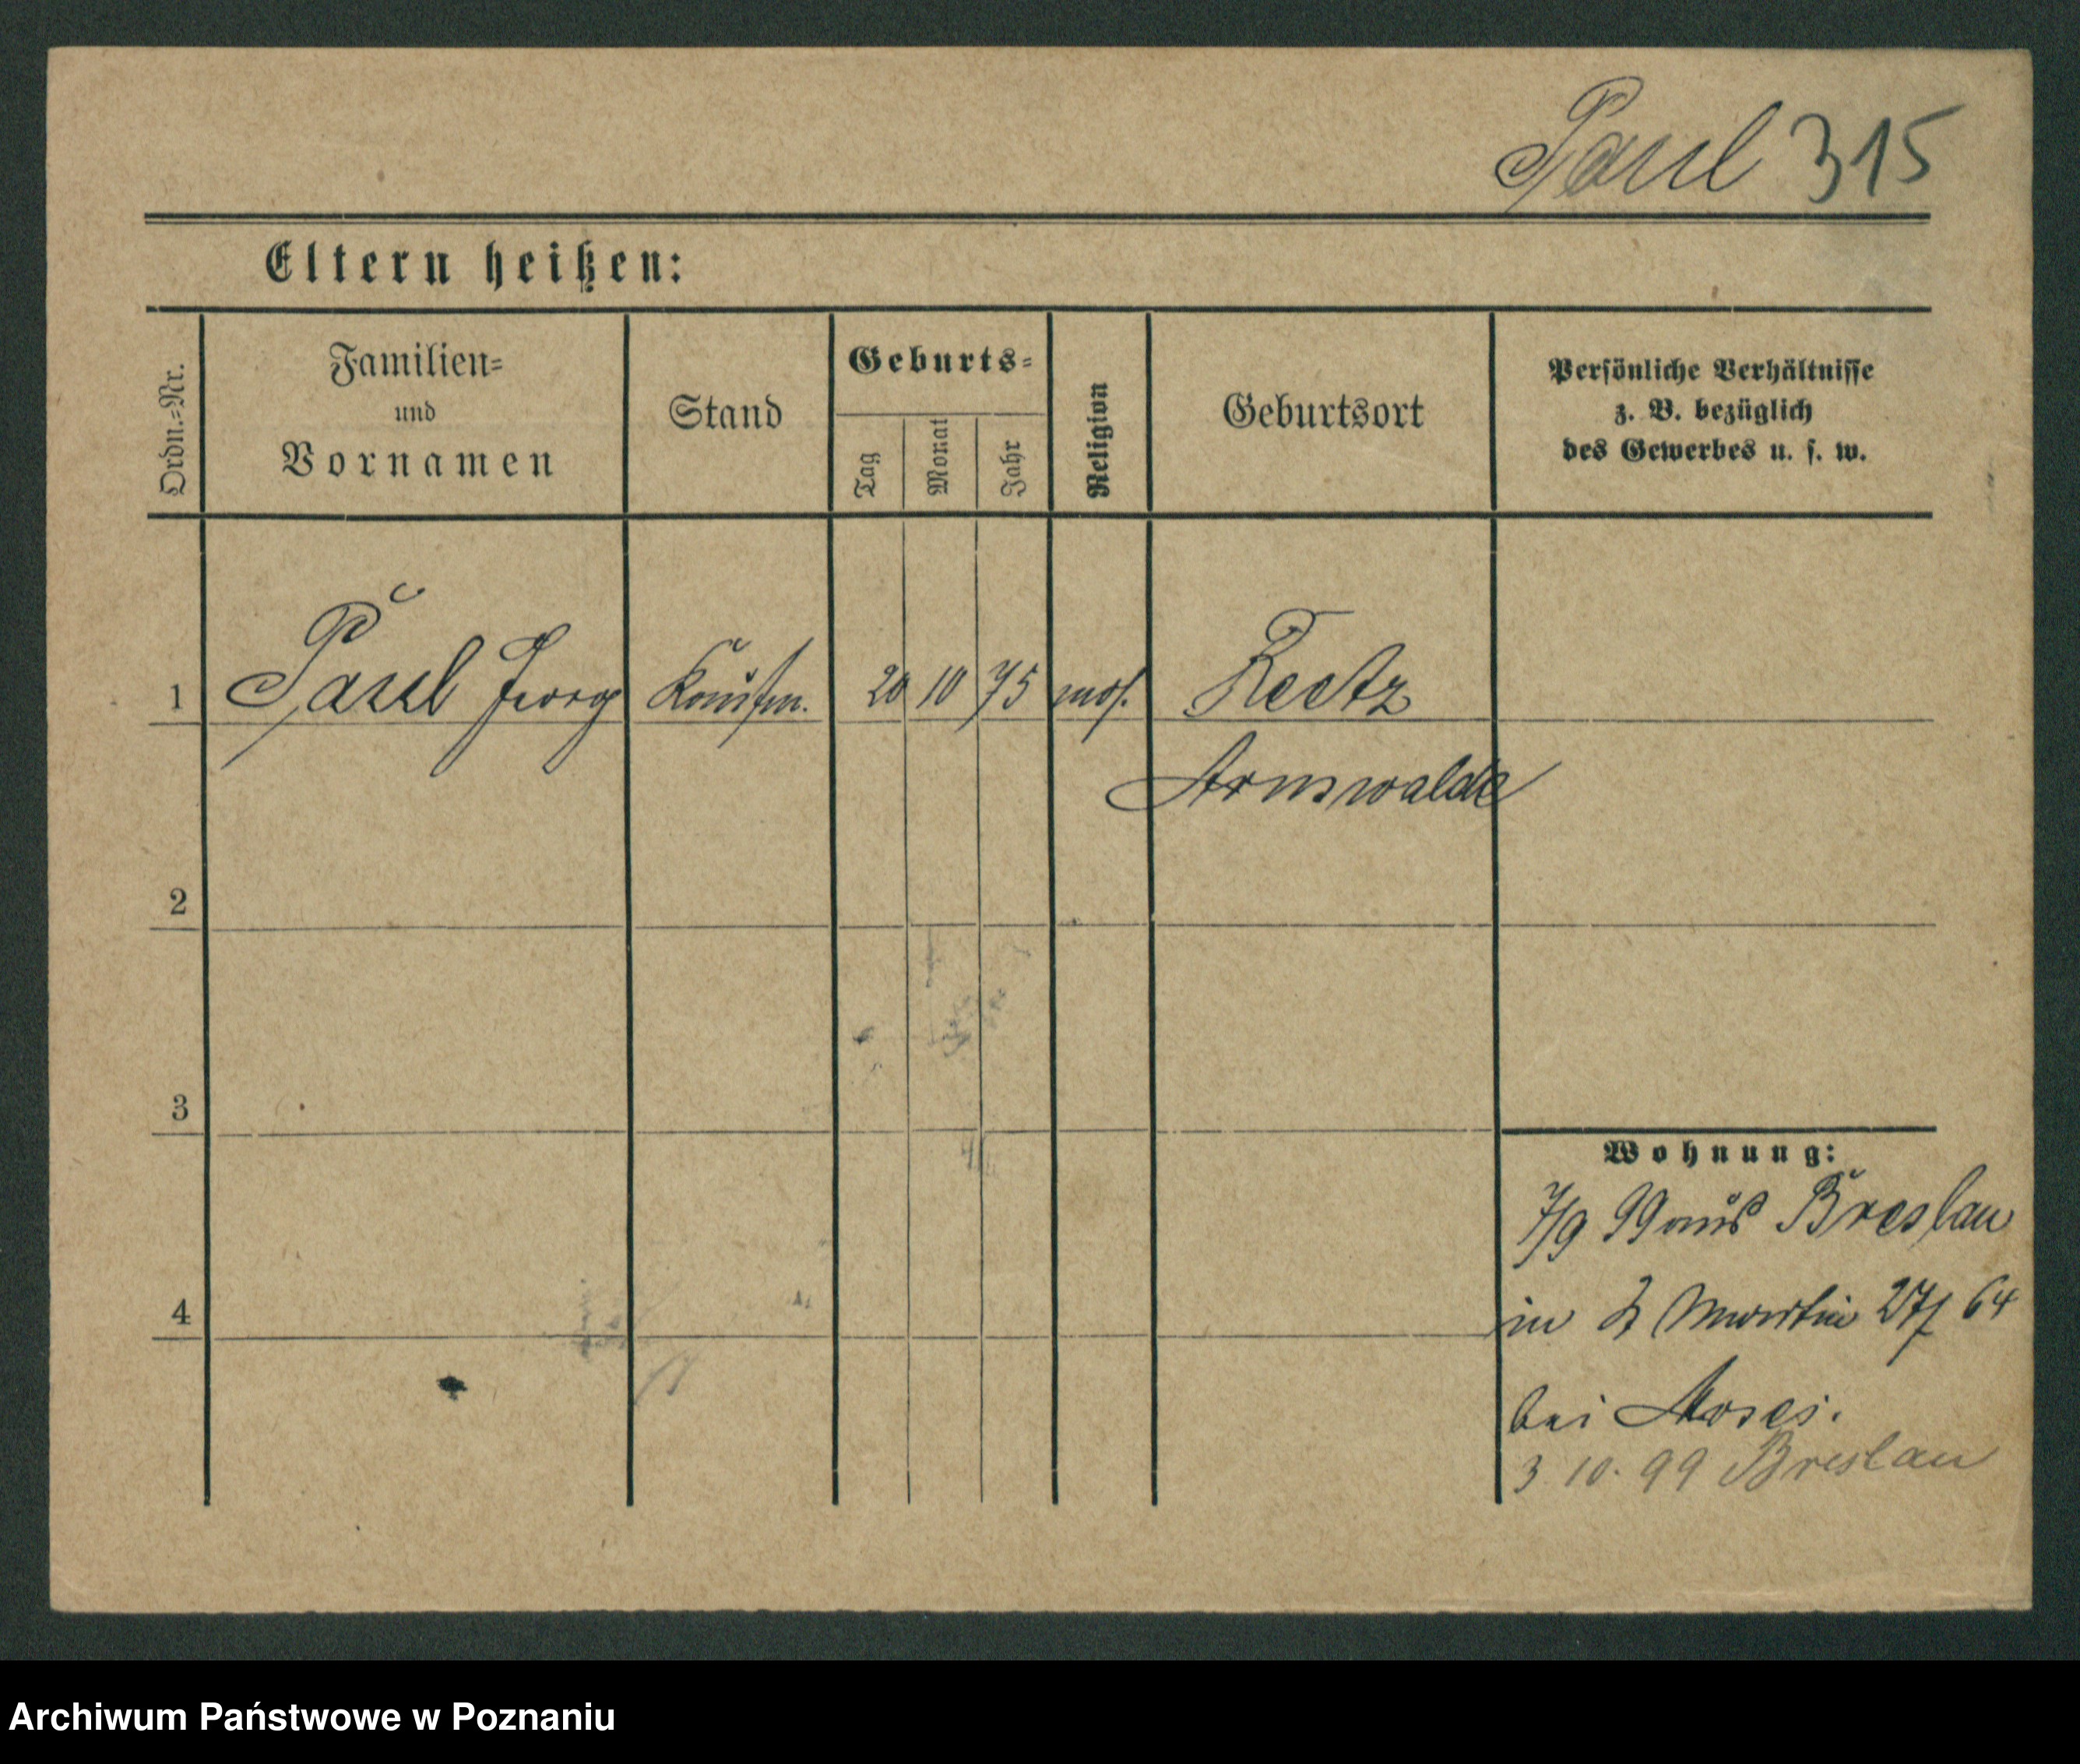 Paul 315
Eltern heißen:
Ordn.=Nr.
Familien=
und
Vornamen
Stand
Geburts=
Tag
Monat
Jahr
Religion
Geburtsort
Persönliche Verhältnisse
z. B. bezüglich
des Gewerbes u. s. w.
1 Paul Georg Kaufm. 20 10 75 mos. Reetz
Arnswalde
2
3
4
Wohnung:
7/9 99 aus Breslau
in St Martin 64
bei Moses.
3 10. 99 Breslau
Archiwum Państwowe w Poznaniu